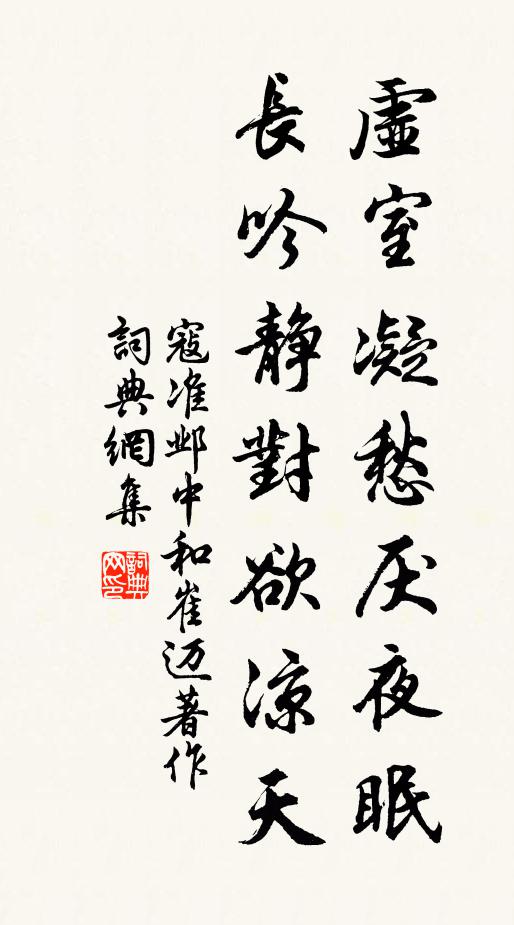 虛室凝愁厌夜眠
長吟静對欲凉天
寇准邺中和崔迈著作
詞典網集
詞典网印